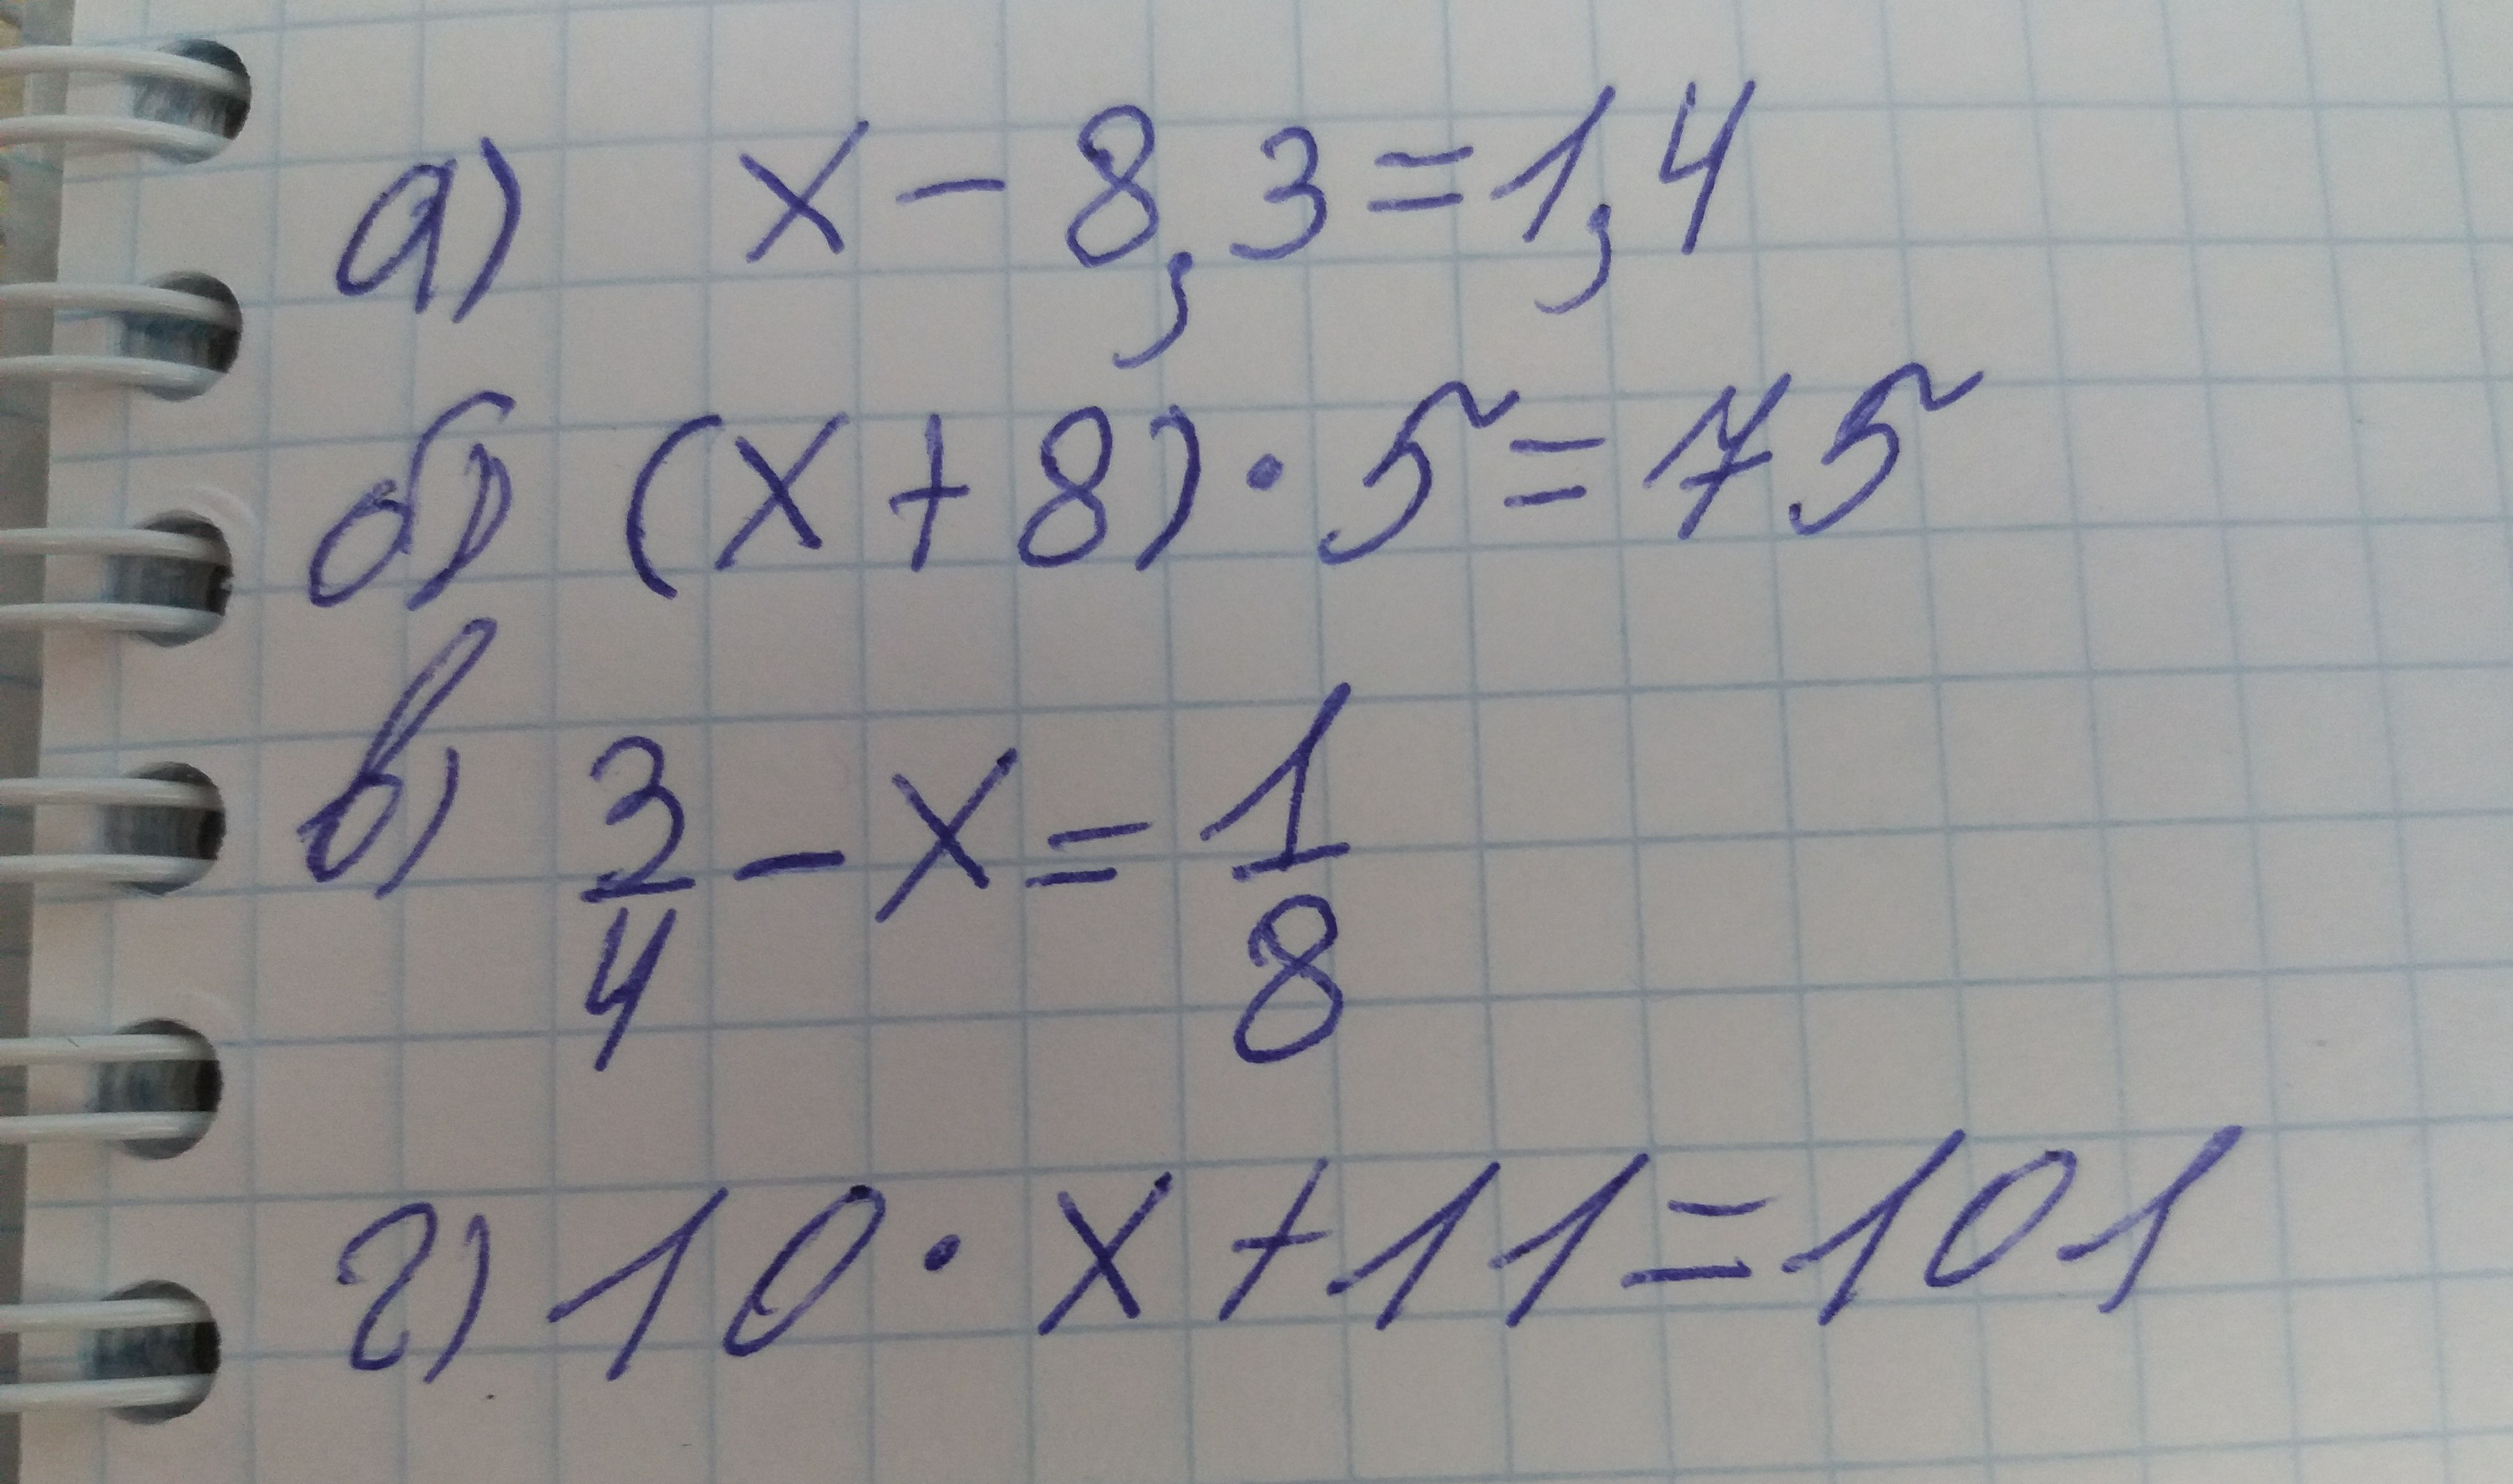 а) x - 8,3 = 1,4
б) (x + 8) · 5 = 75
в) 3/4 - x = 1/8
г) 10 · x + 11 = 101